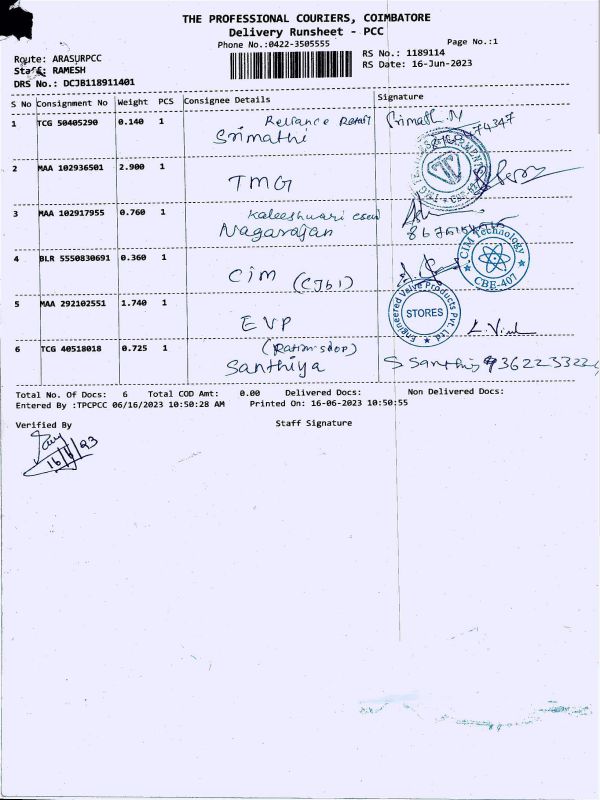 THE PROFESSIONAL COURIERS, COIMBATORE
Delivery Runsheet - PCC
Phone No.:0422-3505555
Page No.:1
Route: ARASURPCC
RS No.: 1189114
Staff: RAMESH
RS Date: 16-Jun-2023
DRS No.: DCJB118911401
S No Consignment No Weight PCS Consignee Details Signature
1 TCG 50405290 0.140 1 Reliance Retail
Srimathi
Srimathi.N
74347
2 MAA 102936501 2.900 1 TMG
3 MAA 102917955 0.760 1 Kaleeshwari
Nagarajan
4 BLR 5550830691 0.360 1 CIM (CJb1)
CIM Technology
CBE-407
5 MAA 292102551 1.740 1 EVP
Engineered Valve Products Pvt. Ltd
STORES
6 TCG 40518018 0.725 1
Santhiya
Total No. Of Docs: 6 Total COD Amt: 0.00 Delivered Docs: Non Delivered Docs:
Entered By :TPCPCC 06/16/2023 10:50:28 AM Printed On: 16-06-2023 10:50:55
Verified By Staff Signature
16/6/23